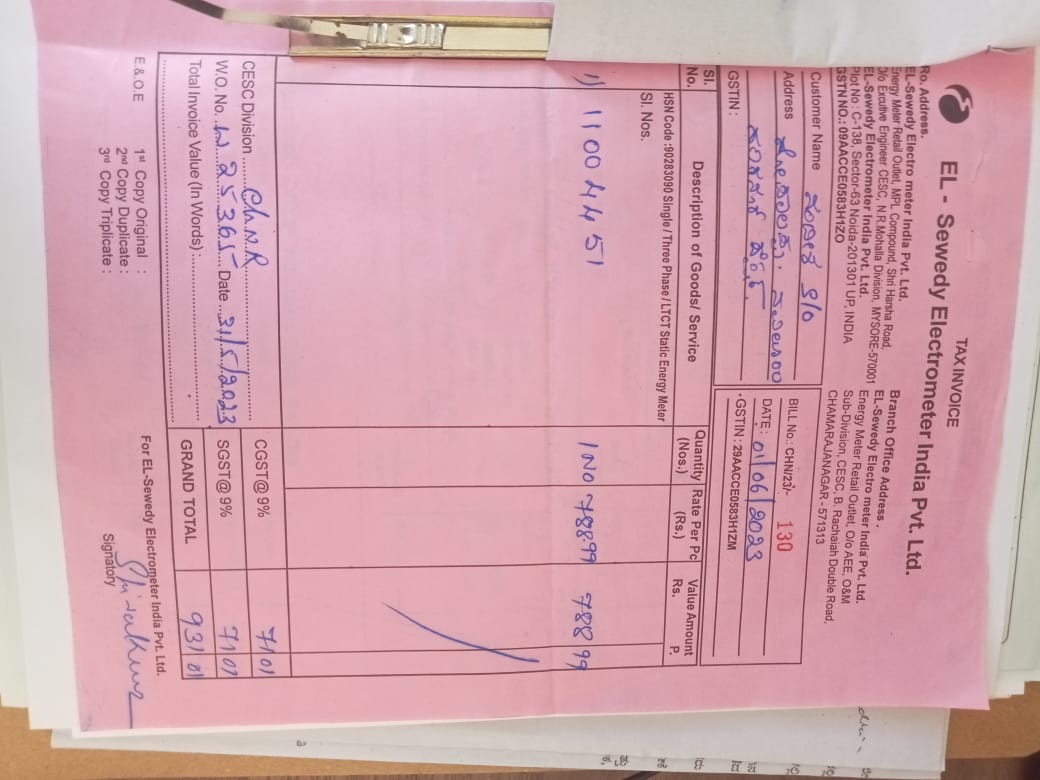 TAX INVOICE
EL - Sewedy Electrometer India Pvt. Ltd.
Ro. Address.
EL-Sewedy Electro meter India Pvt. Ltd.
Energy Meter Retail Outlet, MPL Compound, Shri Harsha Road,
O/o Excutive Engineer CESC, N.R.Mohalla Division, MYSORE-570001
EL-Sewedy Electrometer India Pvt. Ltd.
Plot No : C-138, Sector-63 Noida-201301 UP, INDIA
GSTN NO.: 09AACCE0583H1ZO
Branch Office Address .
EL-Sewedy Electro meter India Pvt. Ltd.
Energy Meter Retail Outlet, O/o AEE, O&M
Sub-Division, CESC, B. Rachaiah Double Road,
CHAMARAJANAGAR - 571313
Customer Name S/o
Address
GSTIN :
BILL No.: CHN/23/- 130
DATE : 01/06/2023
GSTIN : 29AACCE0583H1ZM
Sl. No. Description of Goods/ Service Quantity (Nos.) Rate Per Pc (Rs.) Value Amount Rs. P.
HSN Code :90283090 Single / Three Phase / LTCT Static Energy Meter
Sl. Nos.
1) 11004451 1 NO 788.99 788 99
CESC Division Ch.N.R CGST@ 9% 71 01
W.O. No. 25365 Date 31/5/2023 SGST@ 9% 71 01
Total Invoice Value (In Words) : GRAND TOTAL 931 01
E.& O.E
1st Copy Original :
2nd Copy Duplicate :
3rd Copy Triplicate :
For EL-Sewedy Electrometer India Pvt. Ltd.
Signatory